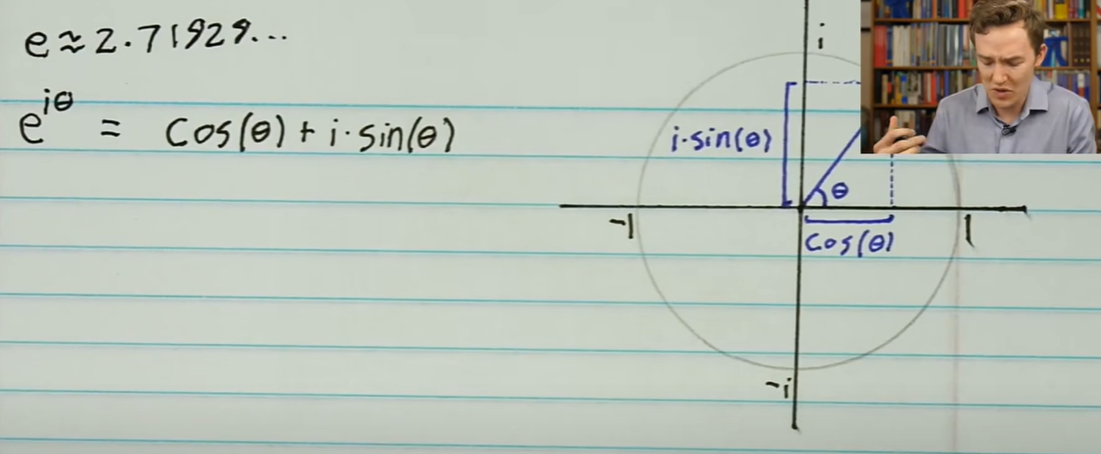 e≈2.71929...
e^{iθ} = cos(θ) + i·sin(θ)
i
i·sin(θ)
θ
-1
cos(θ)
1
-i